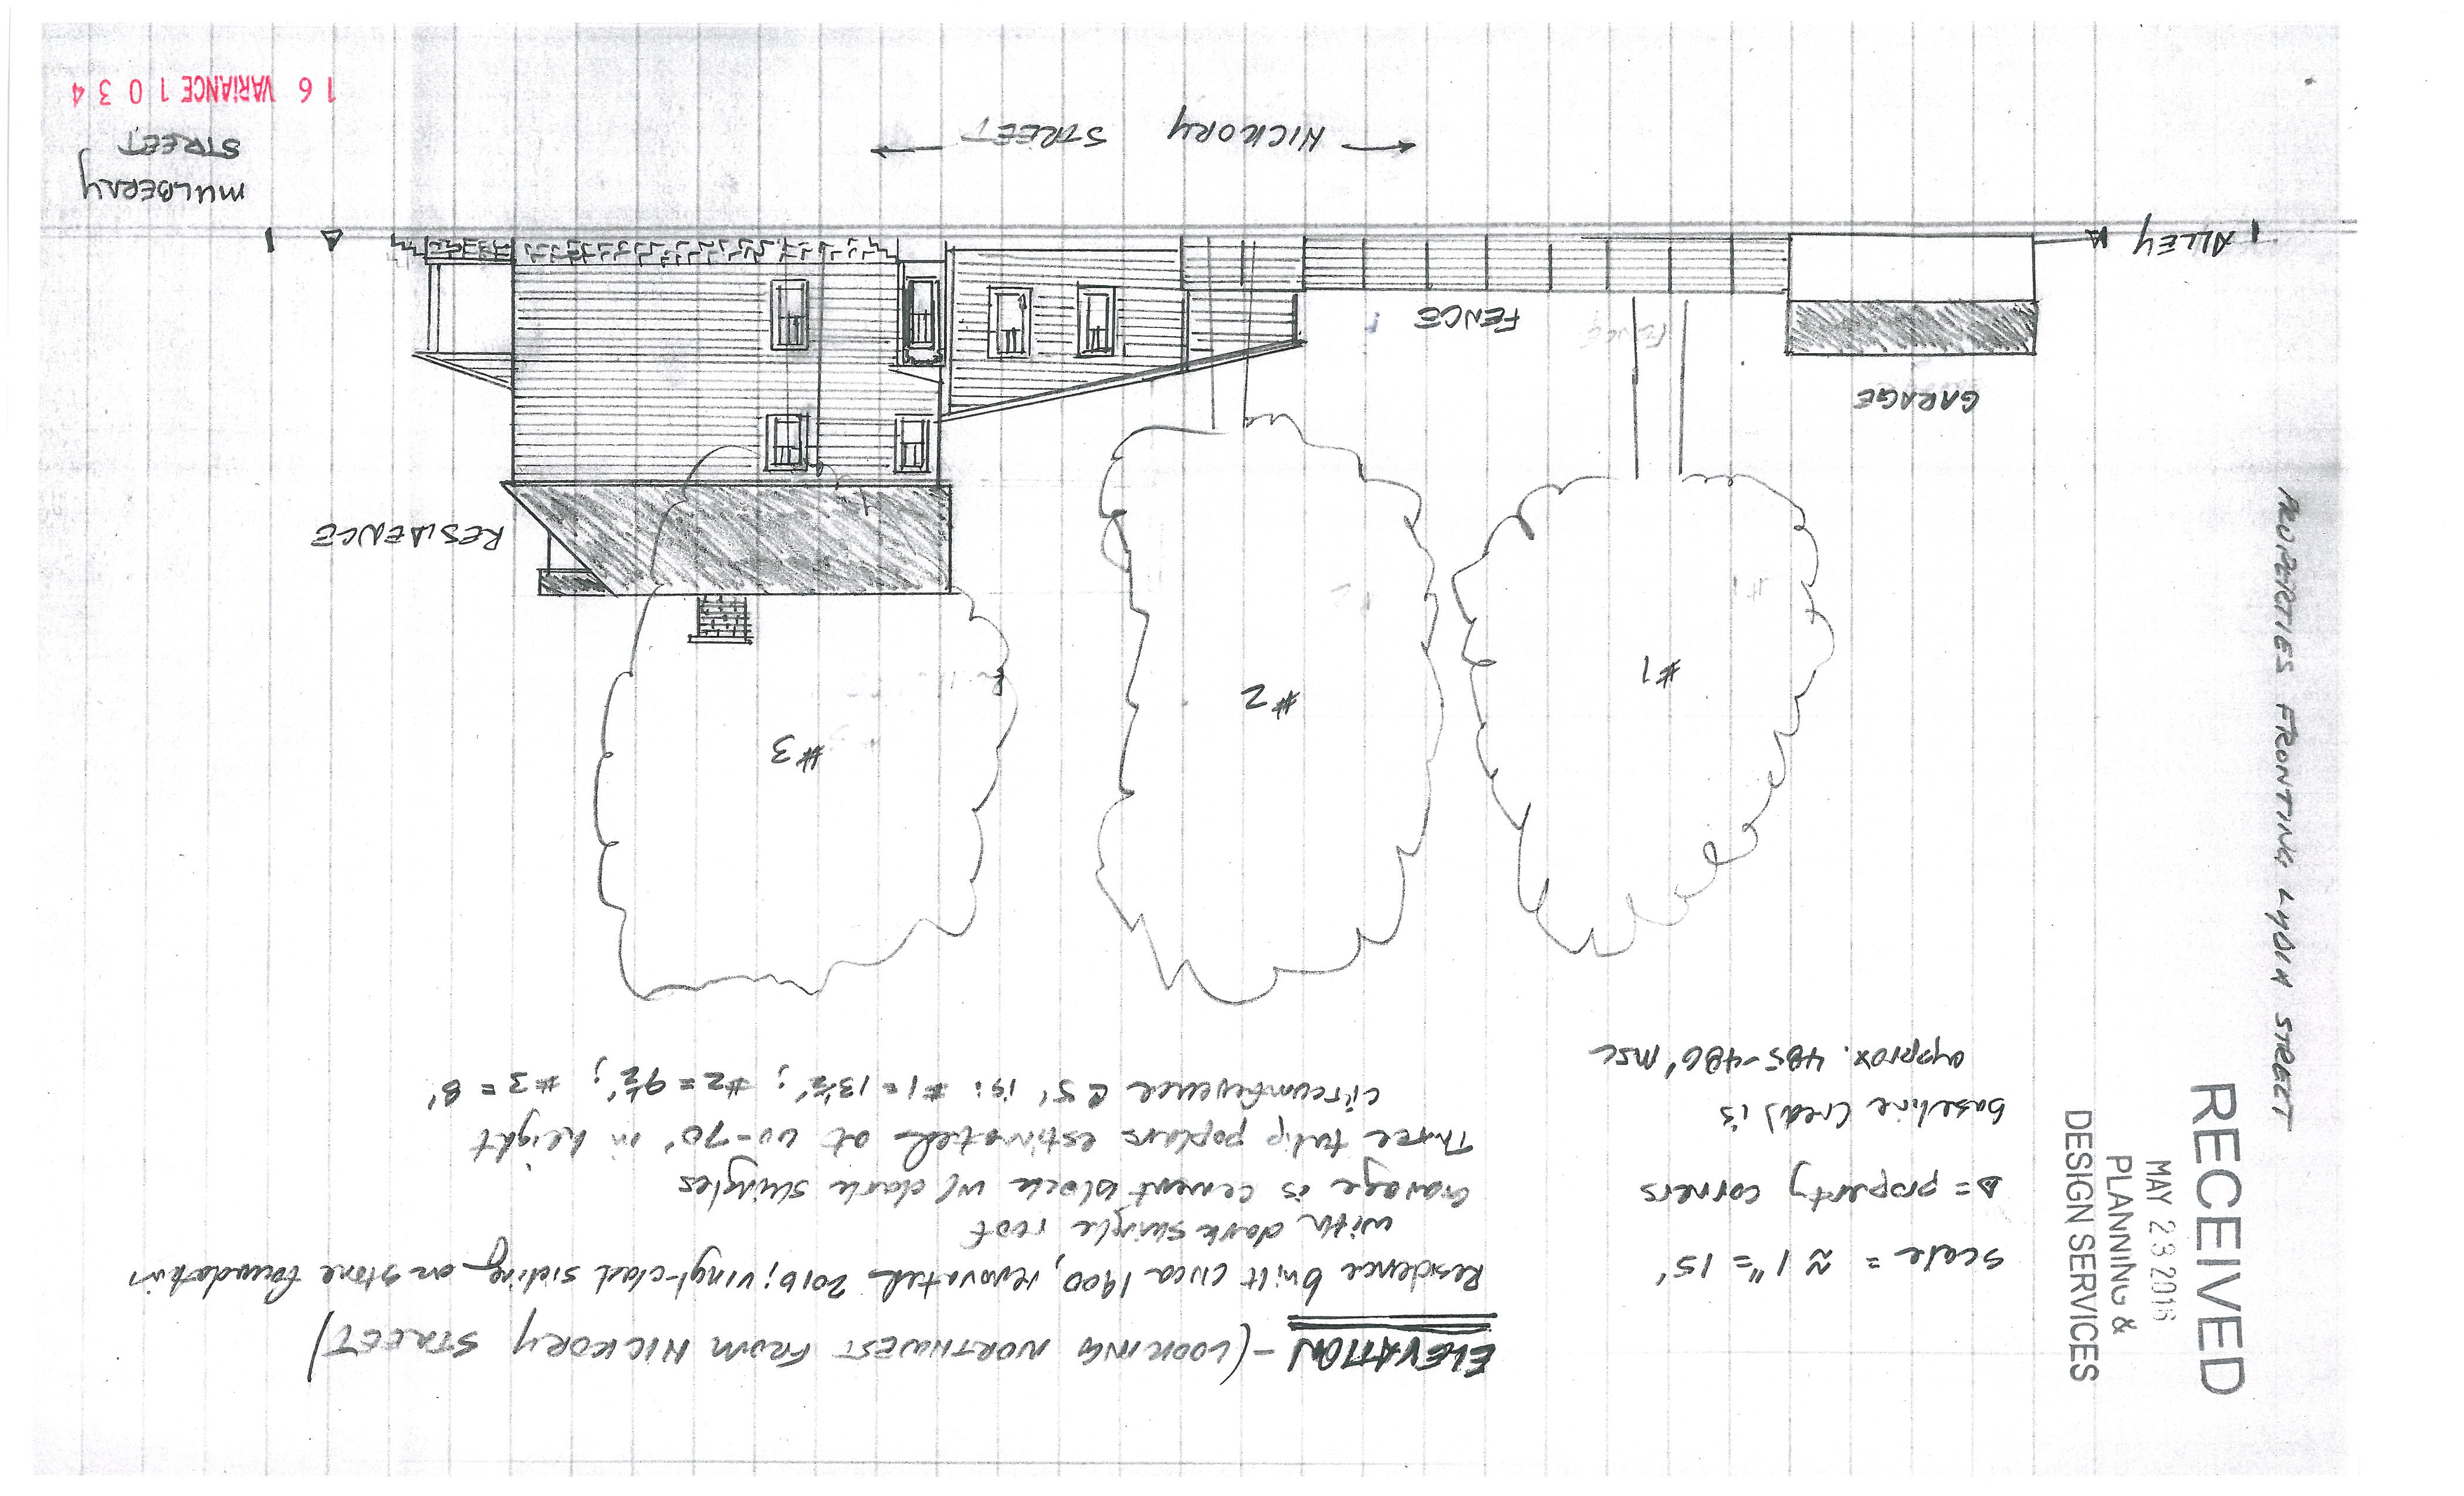 ELEVATION - (LOOKING NORTHWEST FROM HICKORY STREET)
Residence built circa 1900, renovated 2016; vinyl-clad siding on stone foundation
with dark shingle roof
Garage is cement block w/ dark shingles
Three tulip poplars estimated at 60-70' in height
circumference @ 5' is: #1 = 13½'; #2 = 9½'; #3 = 8'
scale = ≈ 1" = 15'
Δ = property corners
baseline (red) is
approx. 485-486' msl
RECEIVED
MAY 23 2016
PLANNING &
DESIGN SERVICES
PROPERTIES FRONTING LYDIA STREET
#1
#2
#3
RESIDENCE
GARAGE
FENCE
ALLEY
MULBERRY
STREET
HICKORY STREET
16 VARIANCE 1034